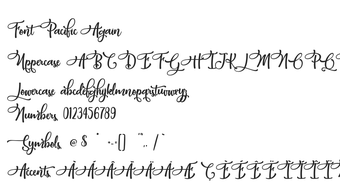 Font Pacific Again
Uppercase ABCDEFGHIJKLMNOPQ
Lowercase abcdefghijklmnopqrstuvwxyz
Numbers 0123456789
Symbols @ $
Accents ÀÁÂÃÄÅÆÇÈÉÊËÌÍÎÏ